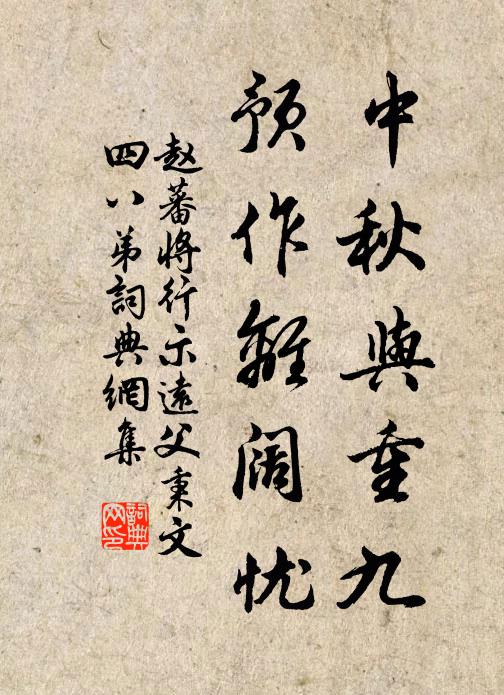 中秋與重九
预作離阔忧
赵蕃將行示遠父秉文
四八弟詞典網集
詞典
网印